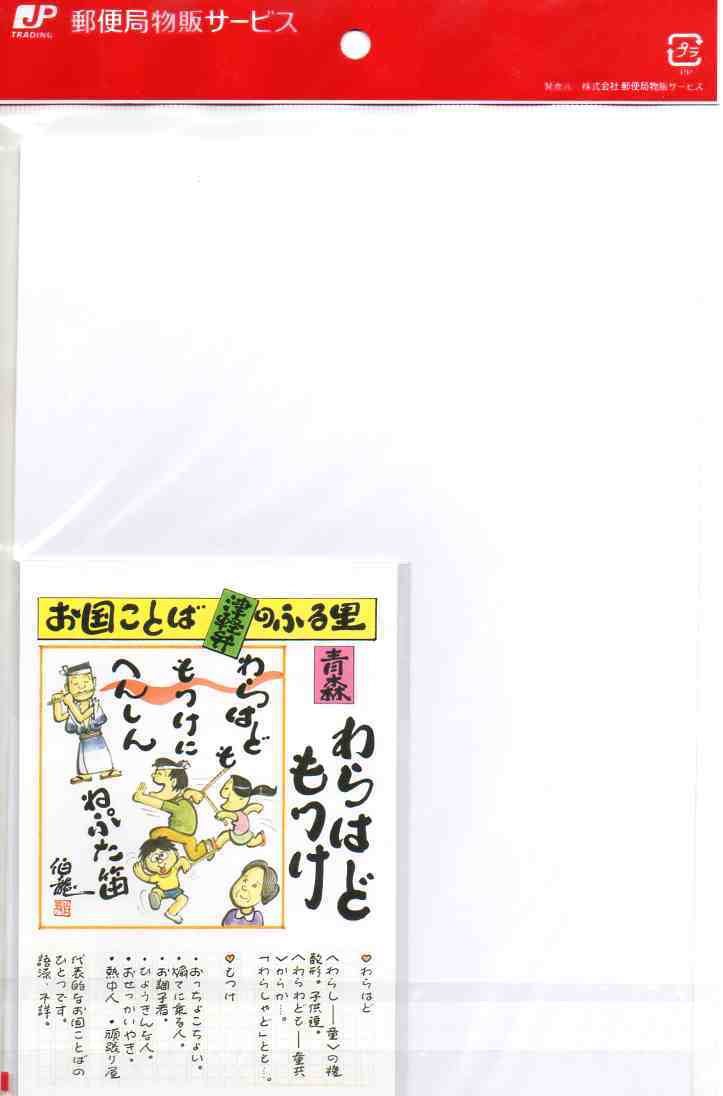 JP
TRADING
郵便局物販サービス
プラ
PP
発売元 株式会社 郵便局物販サービス
お国ことば
津軽弁
のふる里
青森
わらはど
もつけ
わらはども
もつけに
へんしん
ねぷた笛
伯龍
♥わらはど
〈わらし──童〉の複
数形。子供達。
〈わらわども──童共
〉からか…。
「わらしゃど」とも…。
♥もつけ
・おっちょこちょい。
・煽てに乗る人。
・お調子者。
・ひょうきんな人。
・おせっかいやき。
・熱中人 ・頑張り屋
代表的なお国ことばの
ひとつです。
語源・不詳。